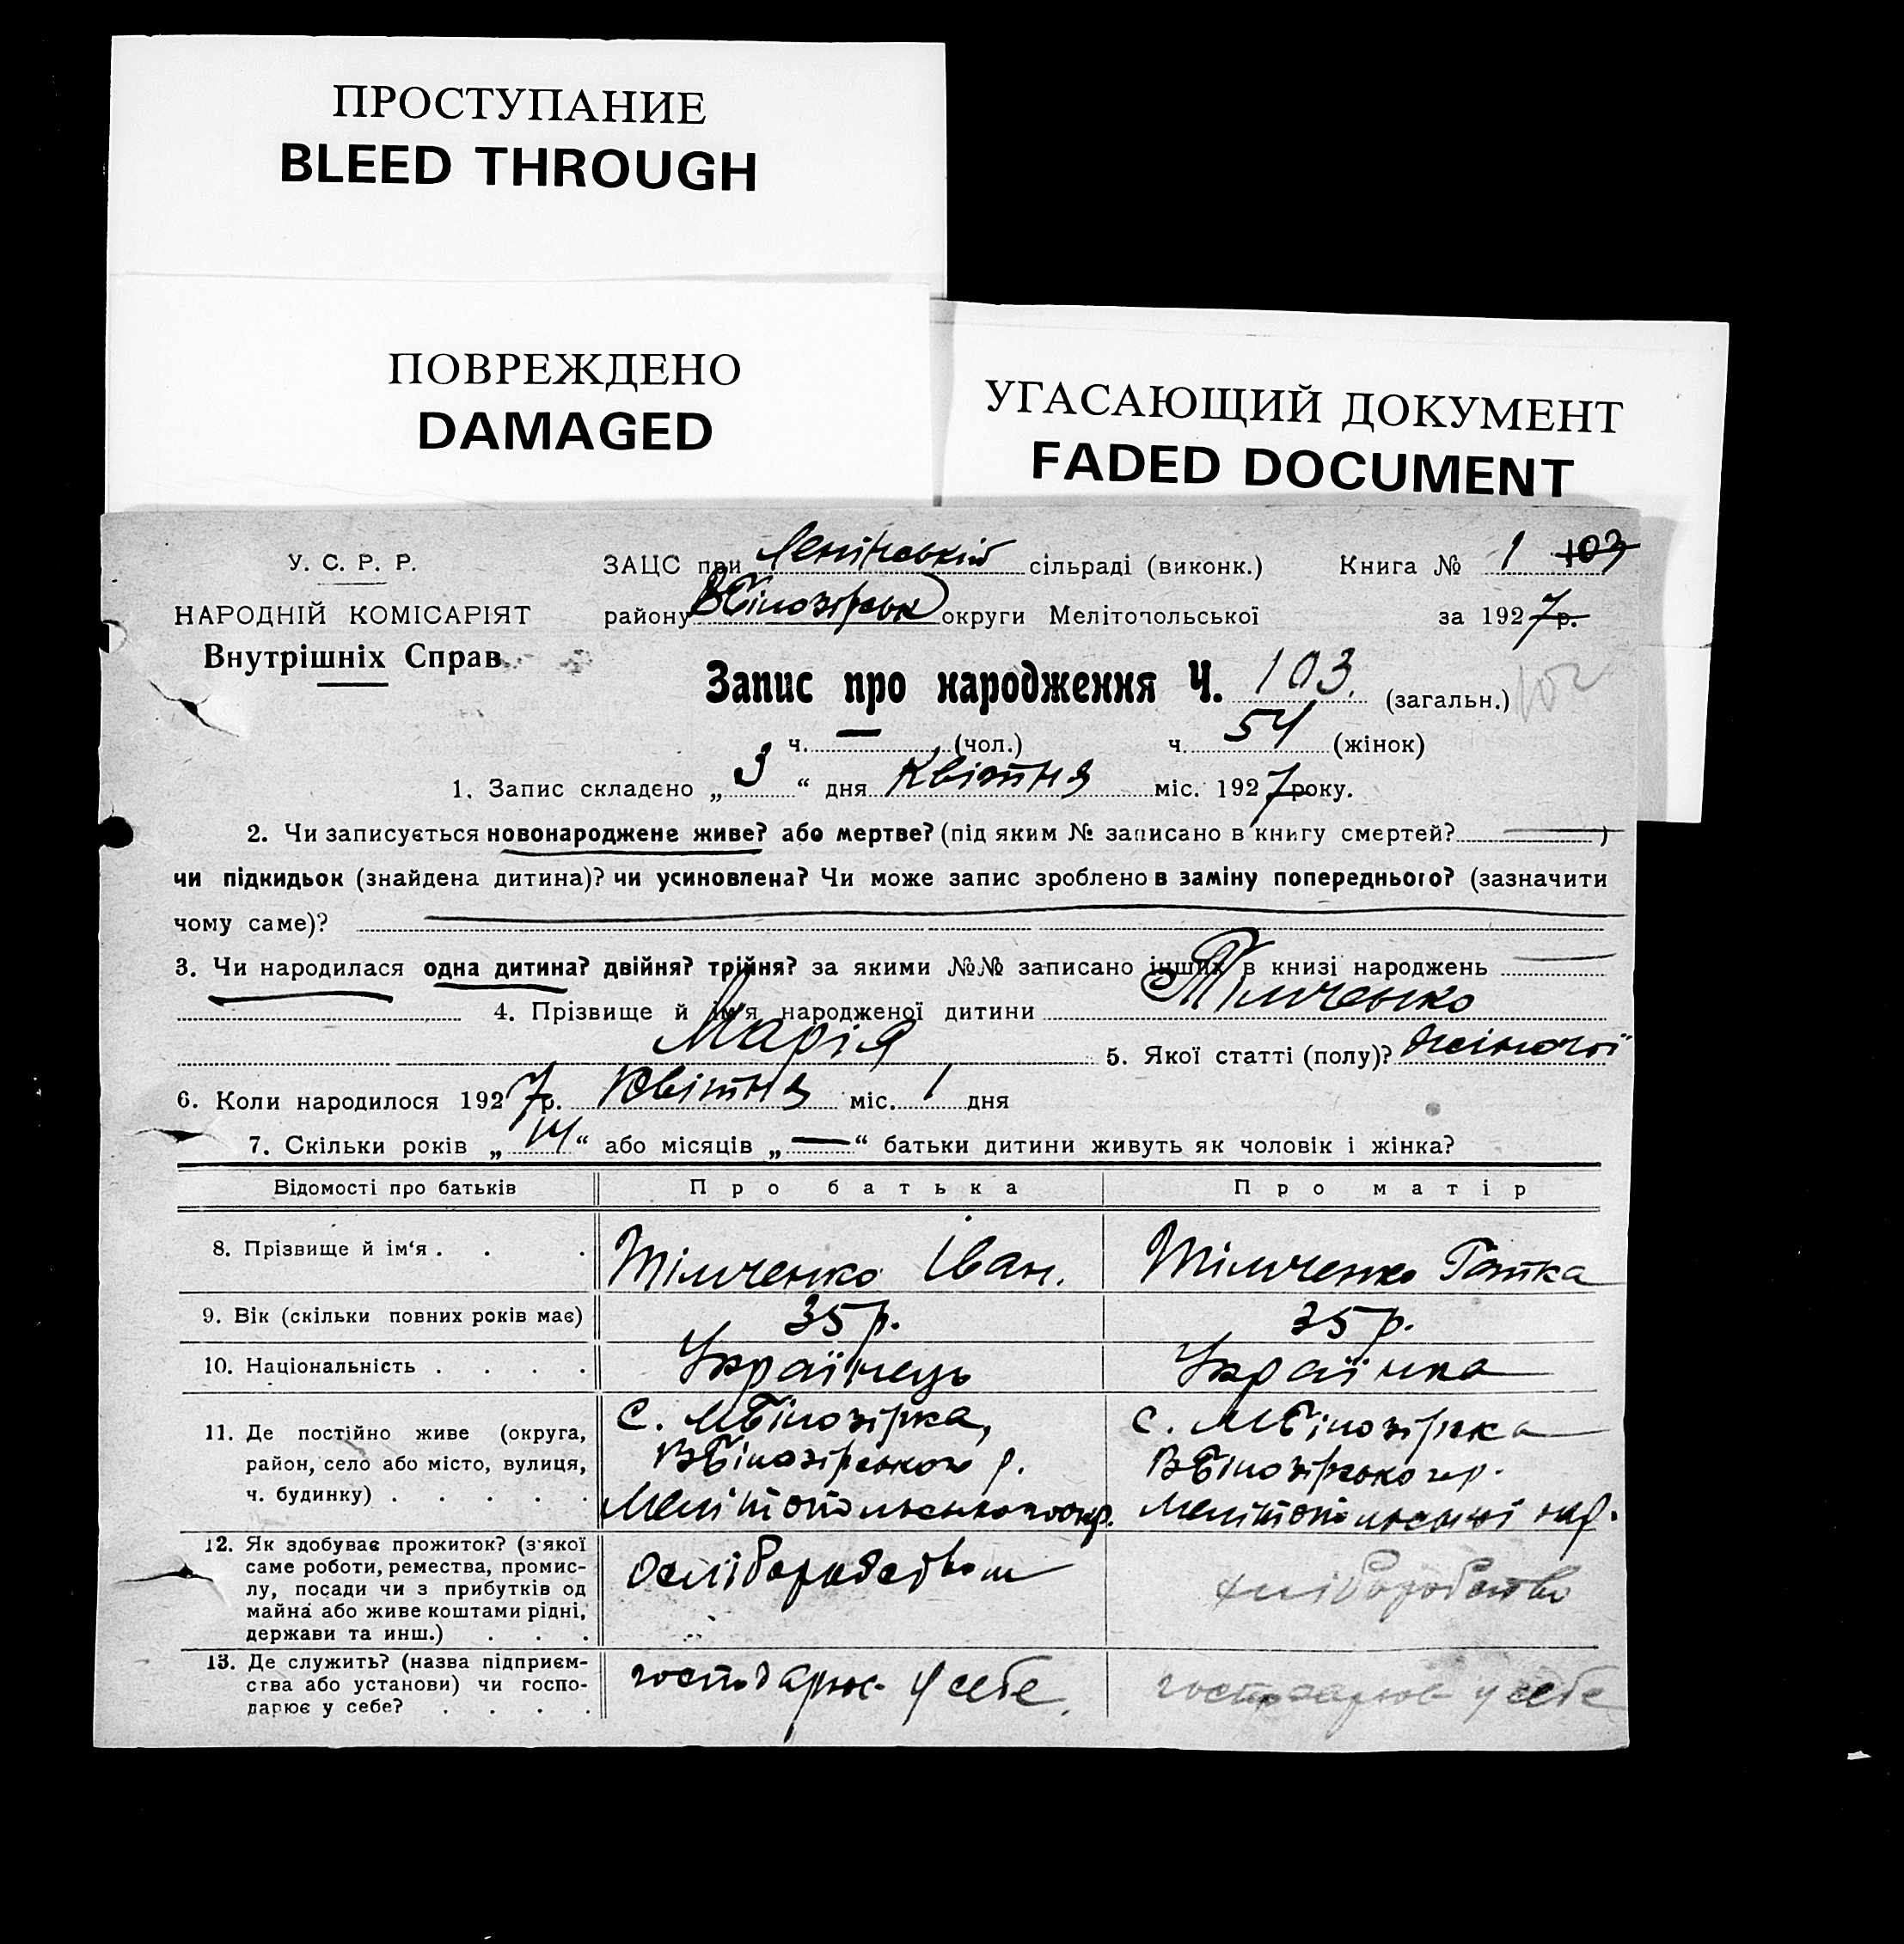 ПРОСТУПАНИЕ
BLEED THROUGH
ПОВРЕЖДЕНО
DAMAGED
УГАСАЮЩИЙ ДОКУМЕНТ
FADED DOCUMENT
У. С. Р. Р.
НАРОДНІЙ КОМІСАРІЯТ
Внутрішніх Справ
ЗАЦС при Ленінській сільраді (виконк.) Книга № 1 103
району ВБілозірськ округи Мелітопольської за 1927 р.
Запис про народження Ч. 103. (загальн.) 102
ч. — (чол.) ч. 54 (жінок)
1. Запис складено „3“ дня Квітня міс. 1927 року.
2. Чи записується новонароджене живе? або мертве? (під яким № записано в книгу смертей? )
чи підкидьок (знайдена дитина)? чи усиновлена? Чи може запис зроблено в заміну попереднього? (зазначити
чому саме)?
3. Чи народилася одна дитина? двійня? трійня? за якими №№ записано інших в книзі народжень
4. Прізвище й ім'я народженої дитини Тімченко
Марія 5. Якої статті (полу)? жіночої
6. Коли народилося 1927 р. Квітня міс. 1 дня
7. Скільки років „14“ або місяців „—“ батьки дитини живуть як чоловік і жінка?
Відомості про батьків Про батька Про матір
8. Прізвище й ім‘я . . . Тімченко Іван. Тімченко Гапка
9. Вік (скільки повних років має) 35 р. 35 р.
10. Національність . . . . Українець Українка
11. Де постійно живе (округа,
район, село або місто, вулиця,
ч. будинку) . . . . .
с. МБілозірка,
ВБілозірського р.
Мелітопольського окр.
с. МБілозірка
ВБілозірсько р.
Мелітопольської окр.
12. Як здобуває прожиток? (з'якої
саме роботи, ремества, промис-
лу, посади чи з прибутків од
майна або живе коштами рідні,
держави та инш.) . . .
хліборобством
хліборобство
13. Де служить? (назва підприєм-
ства або установи) чи госпо-
дарює у себе? . . . .
господарює у себе.
господарює у себе